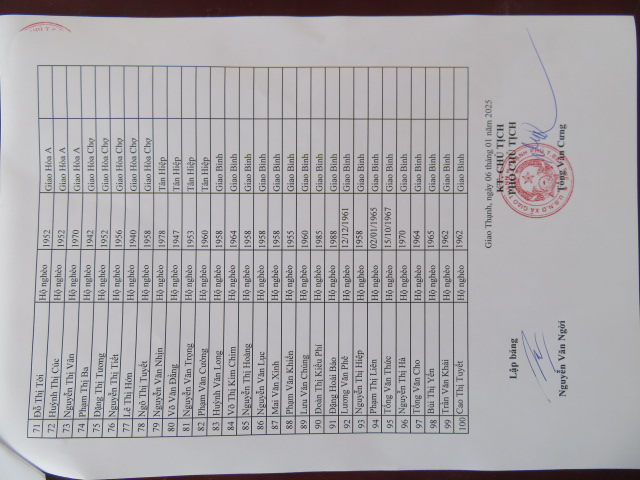 71 Đỗ Thị Tói Hộ nghèo 1952 Giao Hòa A
72 Huỳnh Thị Cúc Hộ nghèo 1952 Giao Hòa A
73 Nguyễn Thị Vân Hộ nghèo 1970 Giao Hòa A
74 Phạm Thị Ba Hộ nghèo 1942 Giao Hòa Chợ
75 Đặng Thị Tương Hộ nghèo 1952 Giao Hòa Chợ
76 Nguyễn Thị Tiết Hộ nghèo 1956 Giao Hòa Chợ
77 Lê Thị Hón Hộ nghèo 1940 Giao Hòa Chợ
78 Ngô Thị Tuyết Hộ nghèo 1958 Giao Hòa Chợ
79 Nguyễn Văn Nhịn Hộ nghèo 1978 Tân Hiệp
80 Võ Văn Đằng Hộ nghèo 1947 Tân Hiệp
81 Nguyễn Văn Trọng Hộ nghèo 1953 Tân Hiệp
82 Phạm Văn Cường Hộ nghèo 1960 Tân Hiệp
83 Huỳnh Văn Long Hộ nghèo 1958 Giao Bình
84 Võ Thị Kim Chim Hộ nghèo 1964 Giao Bình
85 Nguyễn Thị Hoàng Hộ nghèo 1958 Giao Bình
86 Nguyễn Văn Lục Hộ nghèo 1958 Giao Bình
87 Mai Văn Xinh Hộ nghèo 1958 Giao Bình
88 Phạm Văn Khiển Hộ nghèo 1955 Giao Bình
89 Lưu Văn Chúng Hộ nghèo 1960 Giao Bình
90 Đoàn Thị Kiều Phi Hộ nghèo 1985 Giao Bình
91 Đặng Hoài Bảo Hộ nghèo 1988 Giao Bình
92 Lương Văn Phê Hộ nghèo 12/12/1961 Giao Bình
93 Nguyễn Thị Hiệp Hộ nghèo 1958 Giao Bình
94 Phạm Thị Liên Hộ nghèo 02/01/1965 Giao Bình
95 Tống Văn Thức Hộ nghèo 15/10/1967 Giao Bình
96 Nguyễn Thị Hà Hộ nghèo 1970 Giao Bình
97 Tống Văn Cho Hộ nghèo 1964 Giao Bình
98 Bùi Thị Yến Hộ nghèo 1965 Giao Bình
99 Trần Văn Khải Hộ nghèo 1962 Giao Bình
100 Cao Thị Tuyết Hộ nghèo 1962 Giao Bình
Giao Thạnh, ngày 06 tháng 01 năm 2025
KT. CHỦ TỊCH
Lập bảng PHÓ CHỦ TỊCH
Nguyễn Văn Ngời Tống Văn Cưng